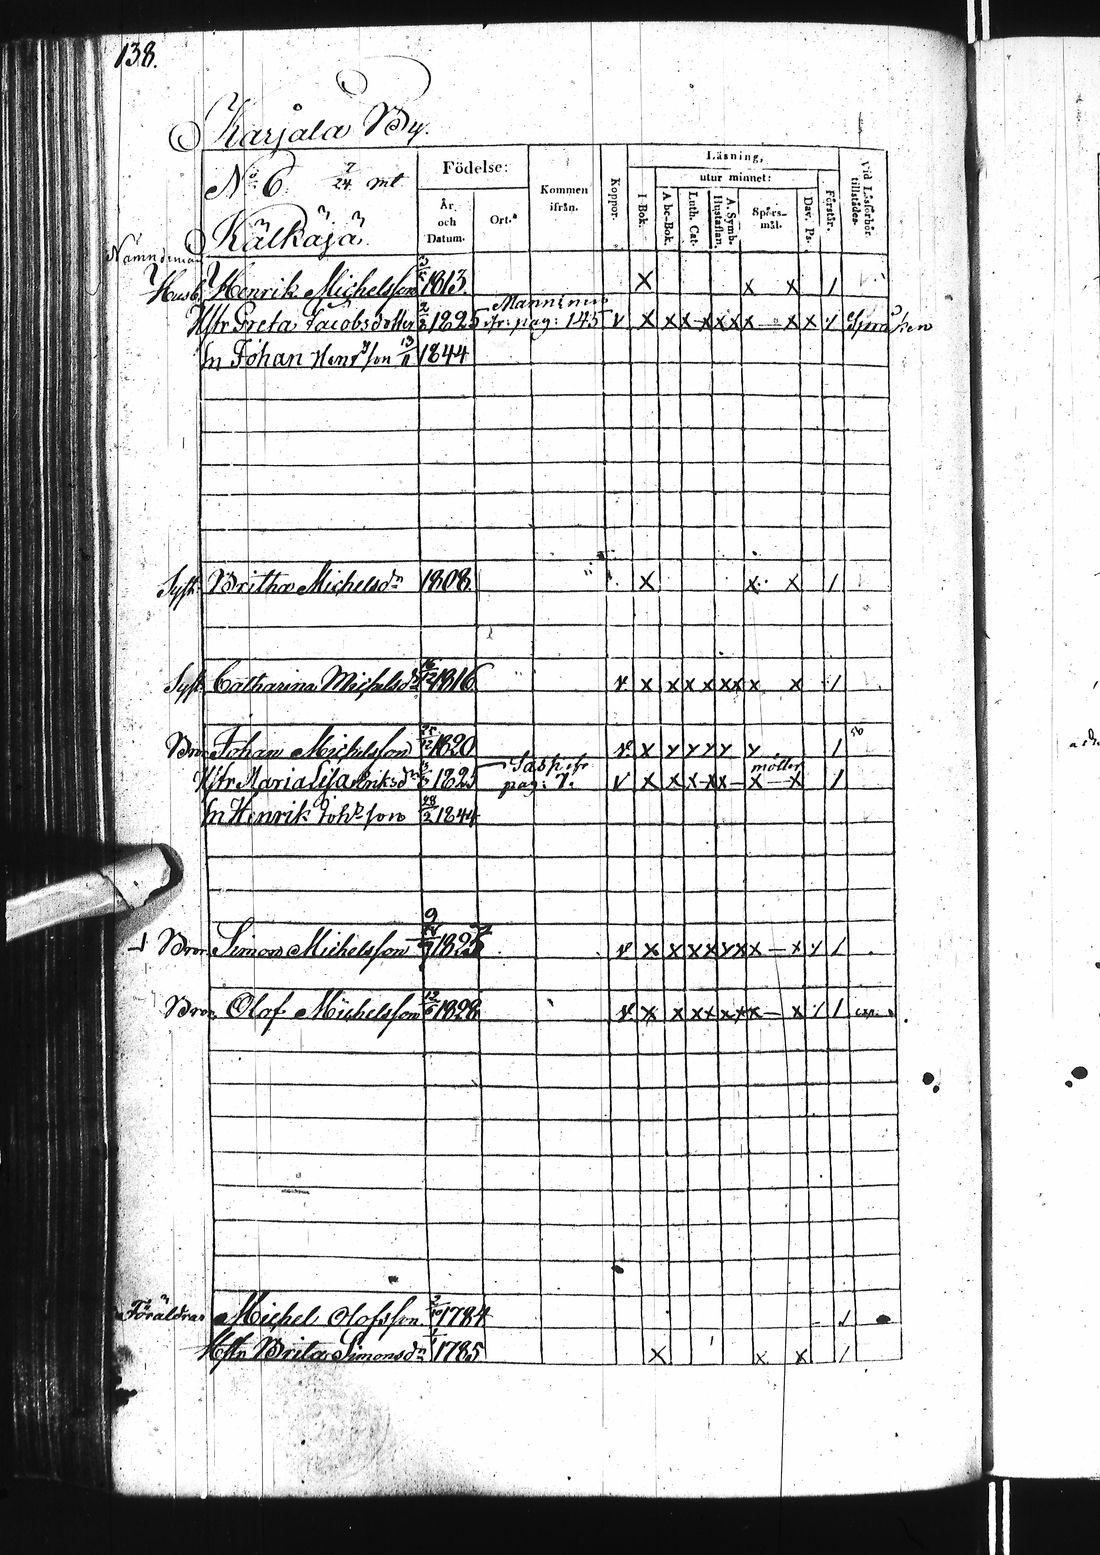 138.
Karjala By.
No 6. 7/24 mt
Kälkäjä
Födelse:
År och Datum.
Ort.
Kommen ifrån.
Koppor.
Läsning,
I Bok.
utur minnet:
A bc-Bok.
Luth. Cat.
A. Symb. Hustaflan.
Spörsmål.
Dav. Ps.
Förstår.
Vid Läsförhör. tillstädes.
Nämndeman
Husb. Henrik Michelsson 1813. x x x /
Hstr Greta Jacobsdotter 2/3 1825 Manninen fr: pag: 145 v x x x x x x x x — x x y
Sn Johan Henrsson 13/11 1844
Syst: Britha Michelsdr 1808. x x x /
Syst: Catharina Michelsdr 16/12 1816 v x x x x x x x x /
Bror Johan Michelsson 25/12 1820 v x y y y y y /
Hstr Maria Lisa Eriksdr 1825 pag: 7. v x x x x x — x — x /
Sn Henrik Johsson 28/2 1844
Bror Simon Michelsson 1825 v x x x x y x x — x / /
Bror Olof Michelsson 12/6 1828 v x x x x x x x — x / /
Föräldrar Michel Olofsson 1784 /
Hstn Brita Simonsdr 1785 x x x /